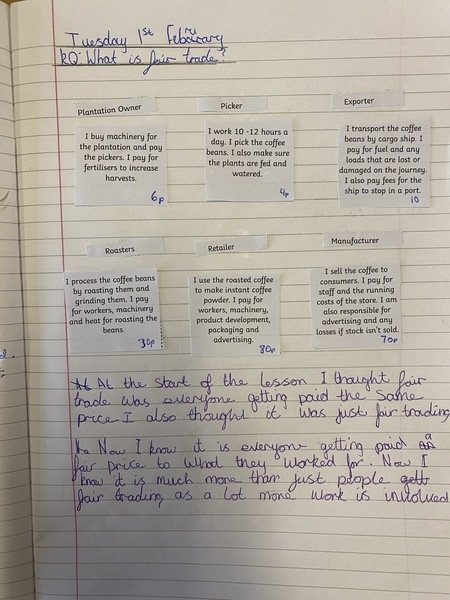 Tuesday 1st February
KQ: What is fair trade?
Plantation Owner
Picker
Exporter
I buy machinery for
the plantation and pay
the pickers. I pay for
fertilisers to increase
harvests.
6p
I work 10 -12 hours a
day. I pick the coffee
beans. I also make sure
the plants are fed and
watered.
4p
I transport the coffee
beans by cargo ship. I
pay for fuel and any
loads that are lost or
damaged on the journey.
I also pay fees for the
ship to stop in a port.
10
Roasters
Retailer
Manufacturer
I process the coffee beans
by roasting them and
grinding them. I pay
for workers, machinery
and heat for roasting the
beans.
30p
I use the roasted coffee
to make instant coffee
powder. I pay for
workers, machinery,
product development,
packaging and
advertising.
80p
I sell the coffee to
consumers. I pay for
staff and the running
costs of the store. I am
also responsible for
advertising and any
losses if stock isn't sold.
70p
At the start of the lesson I thought fair
trade was everyone getting paid the same
price I also thought it was just fair trading
Now I know it is everyone getting paid a
fair price to what they worked for. Now I
know it is much more than just people
fair trading, as a lot more work is involved